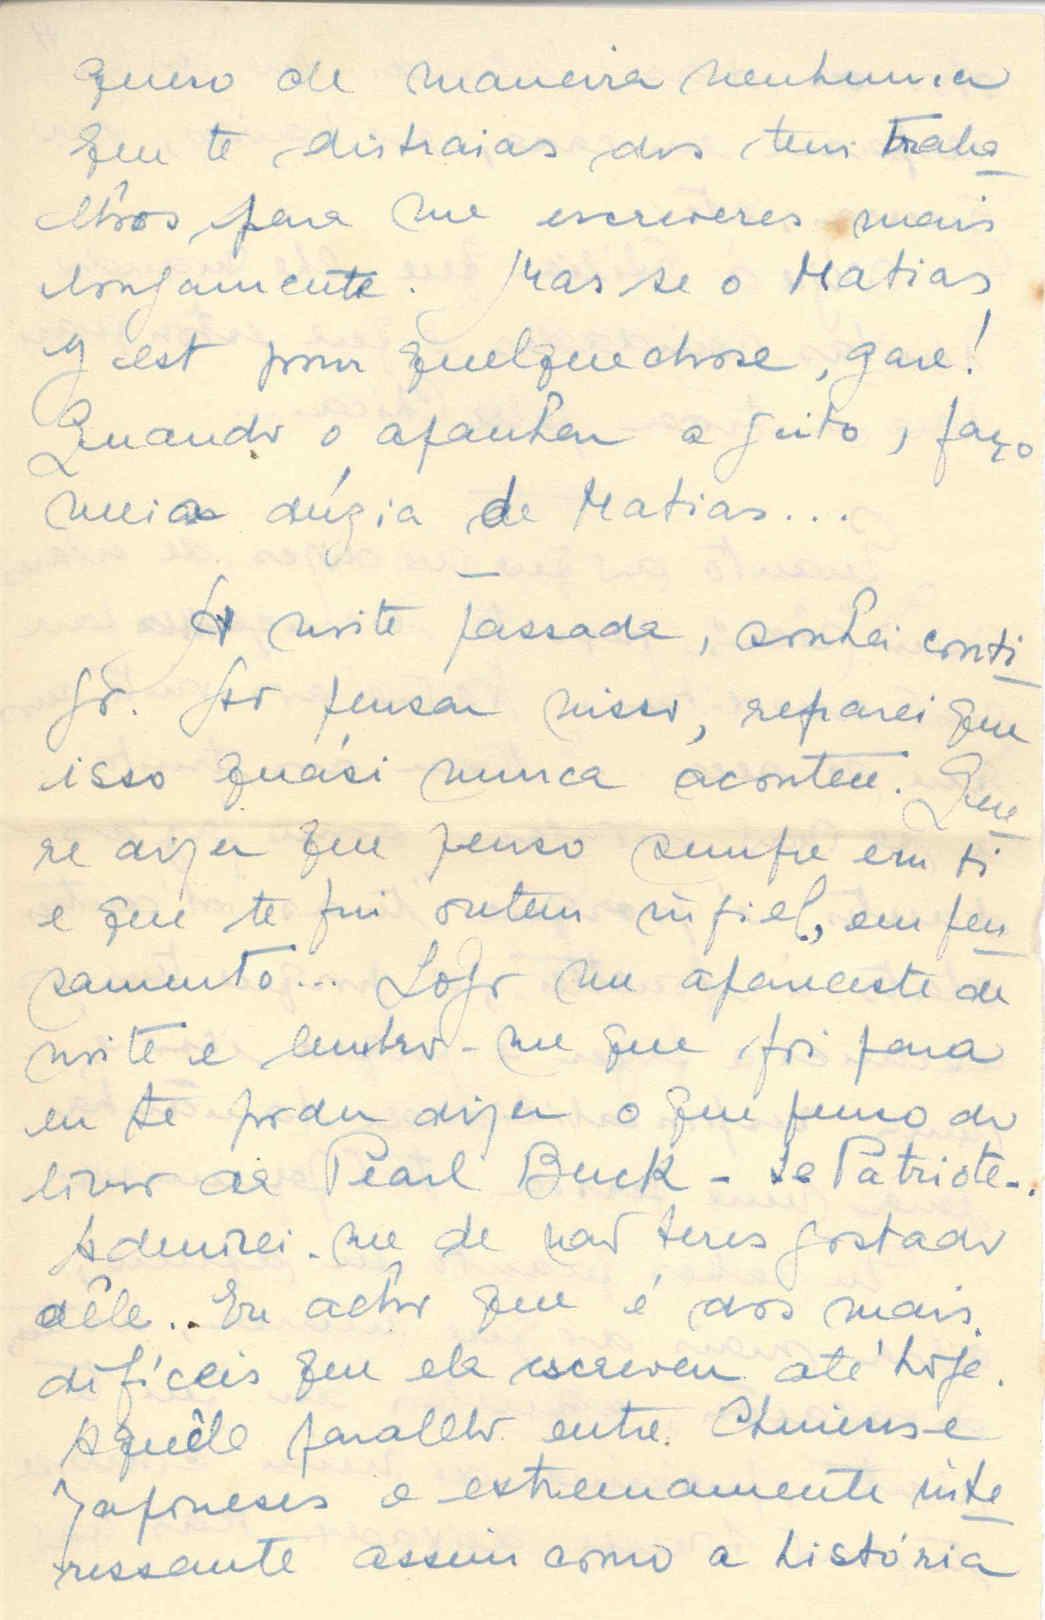 quero de maneira nenhuma
que te distraias dos teus traba
lhos, para me escreveres mais
longamente. Mas se o Matias
y est pour quelque chose, gare!
Quando o apanhar a geito, faço
meia dúzia de Matias...
A noite passada, sonhei conti
go. Ao pensar nisso, reparei que
isso quási nunca acontece. Que
re dizer que penso sempre em ti
e que te fui ontem infiel, em pen
samento... Logo me apareceste de
noite e lembro-me que foi para
eu te poder dizer o que penso do
livro de Pearl Buck - Le Patriote-.
Admirei-me de não teres gostado
dêle.. Eu acho que é dos mais
difíceis que ela escreveu até hoje.
Aquêle paralelo entre Chineses e
Japoneses é extremamente inte
ressante assim como a história